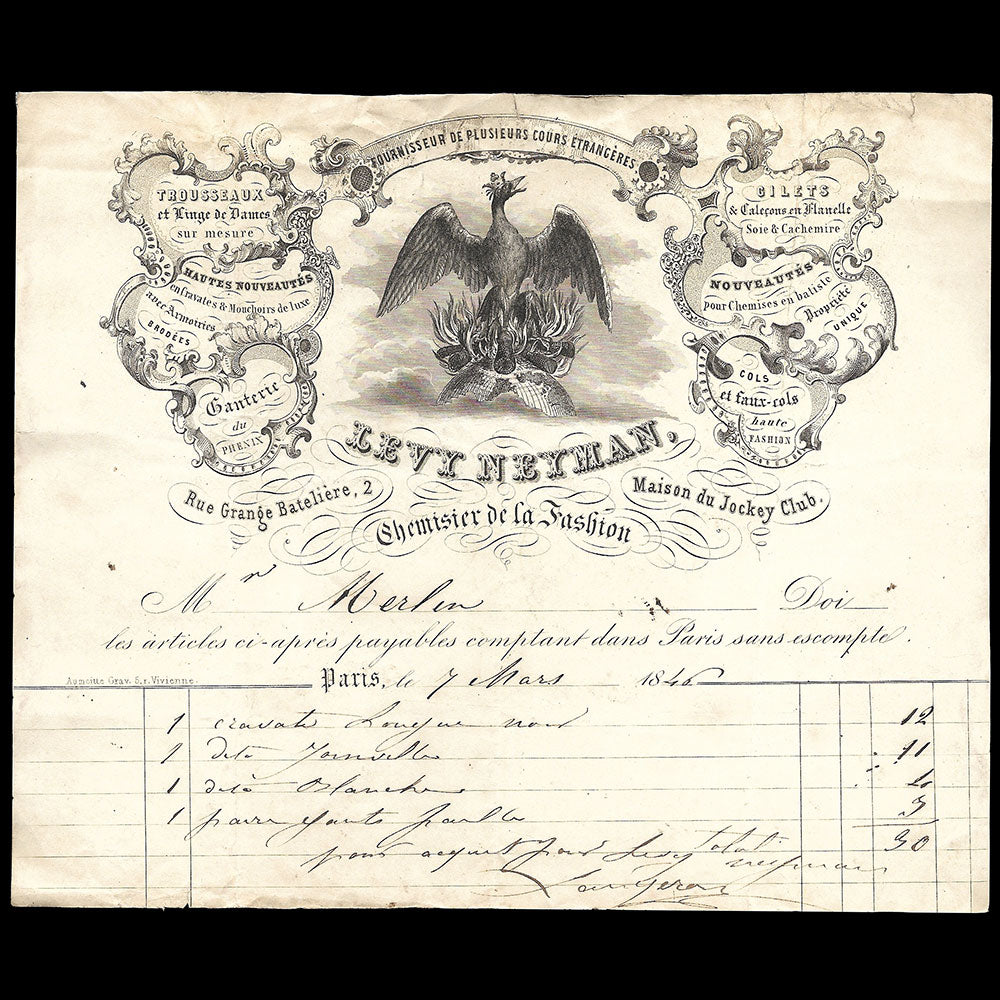 FOURNISSEUR DE PLUSIEURS COURS ÉTRANGÈRES
TROUSSEAUX
et Linge de Dames
sur mesure
HAUTES NOUVEAUTÉS
en Cravates & Mouchoirs de luxe
avec Armoiries
BRODÉES
Ganterie
du
PHENIX
GILETS
& Caleçons en Flanelle
Soie & Cachemire
NOUVEAUTÉS
pour Chemises en batiste
Propriété
UNIQUE
COLS
et faux-cols
haute
FASHION
LEVY NEYMAN,
Rue Grange Batelière, 2
Maison du Jockey Club.
Chemisier de la Fashion
Mr Merlin Doi
les articles ci-après payables comptant dans Paris sans escompte.
Aumoitte Grav. 5, r. Vivienne.
Paris, le 7 Mars 1846
1 cravate Longue noir 12
1 dito Joinville 11
1 dito Blanche 4
1 paire gants paille 3
total 30
pour acquit pour Levy neyman